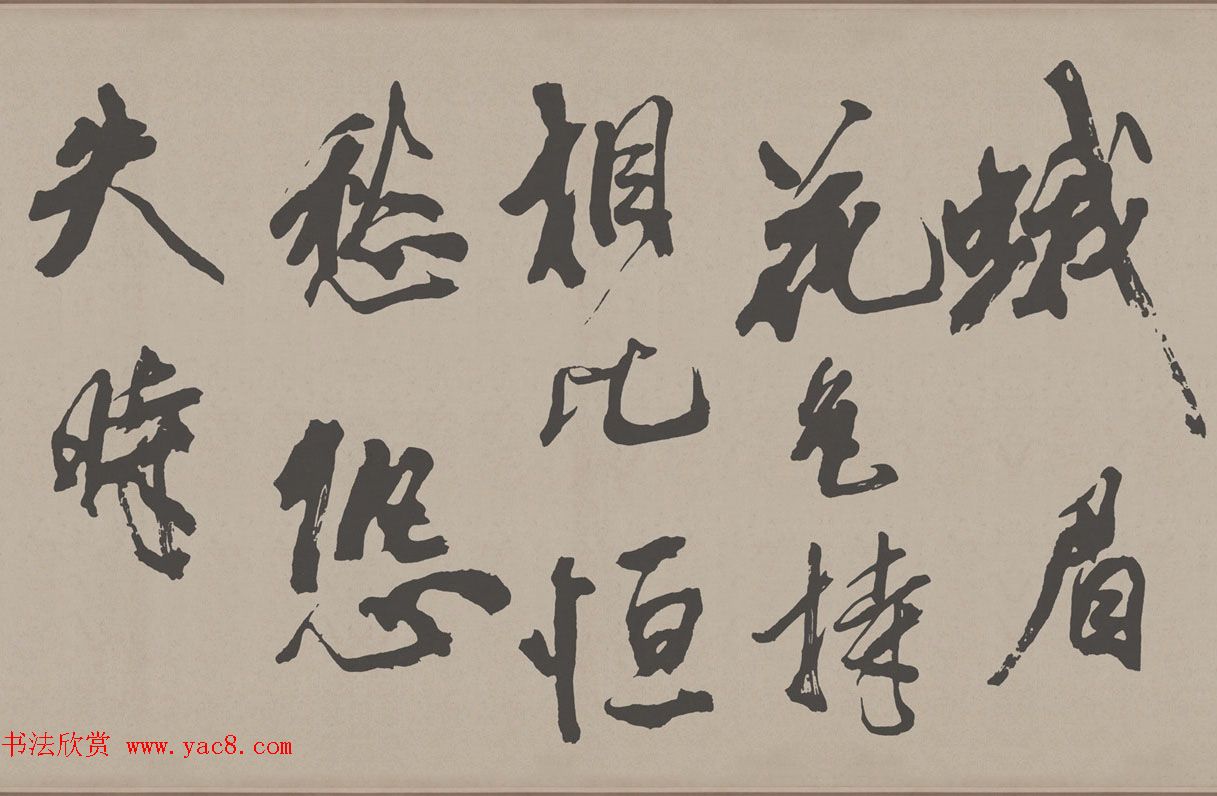 蛾眉
花色持
相比恒
愁恐
失時
书法欣赏 www.yac8.com